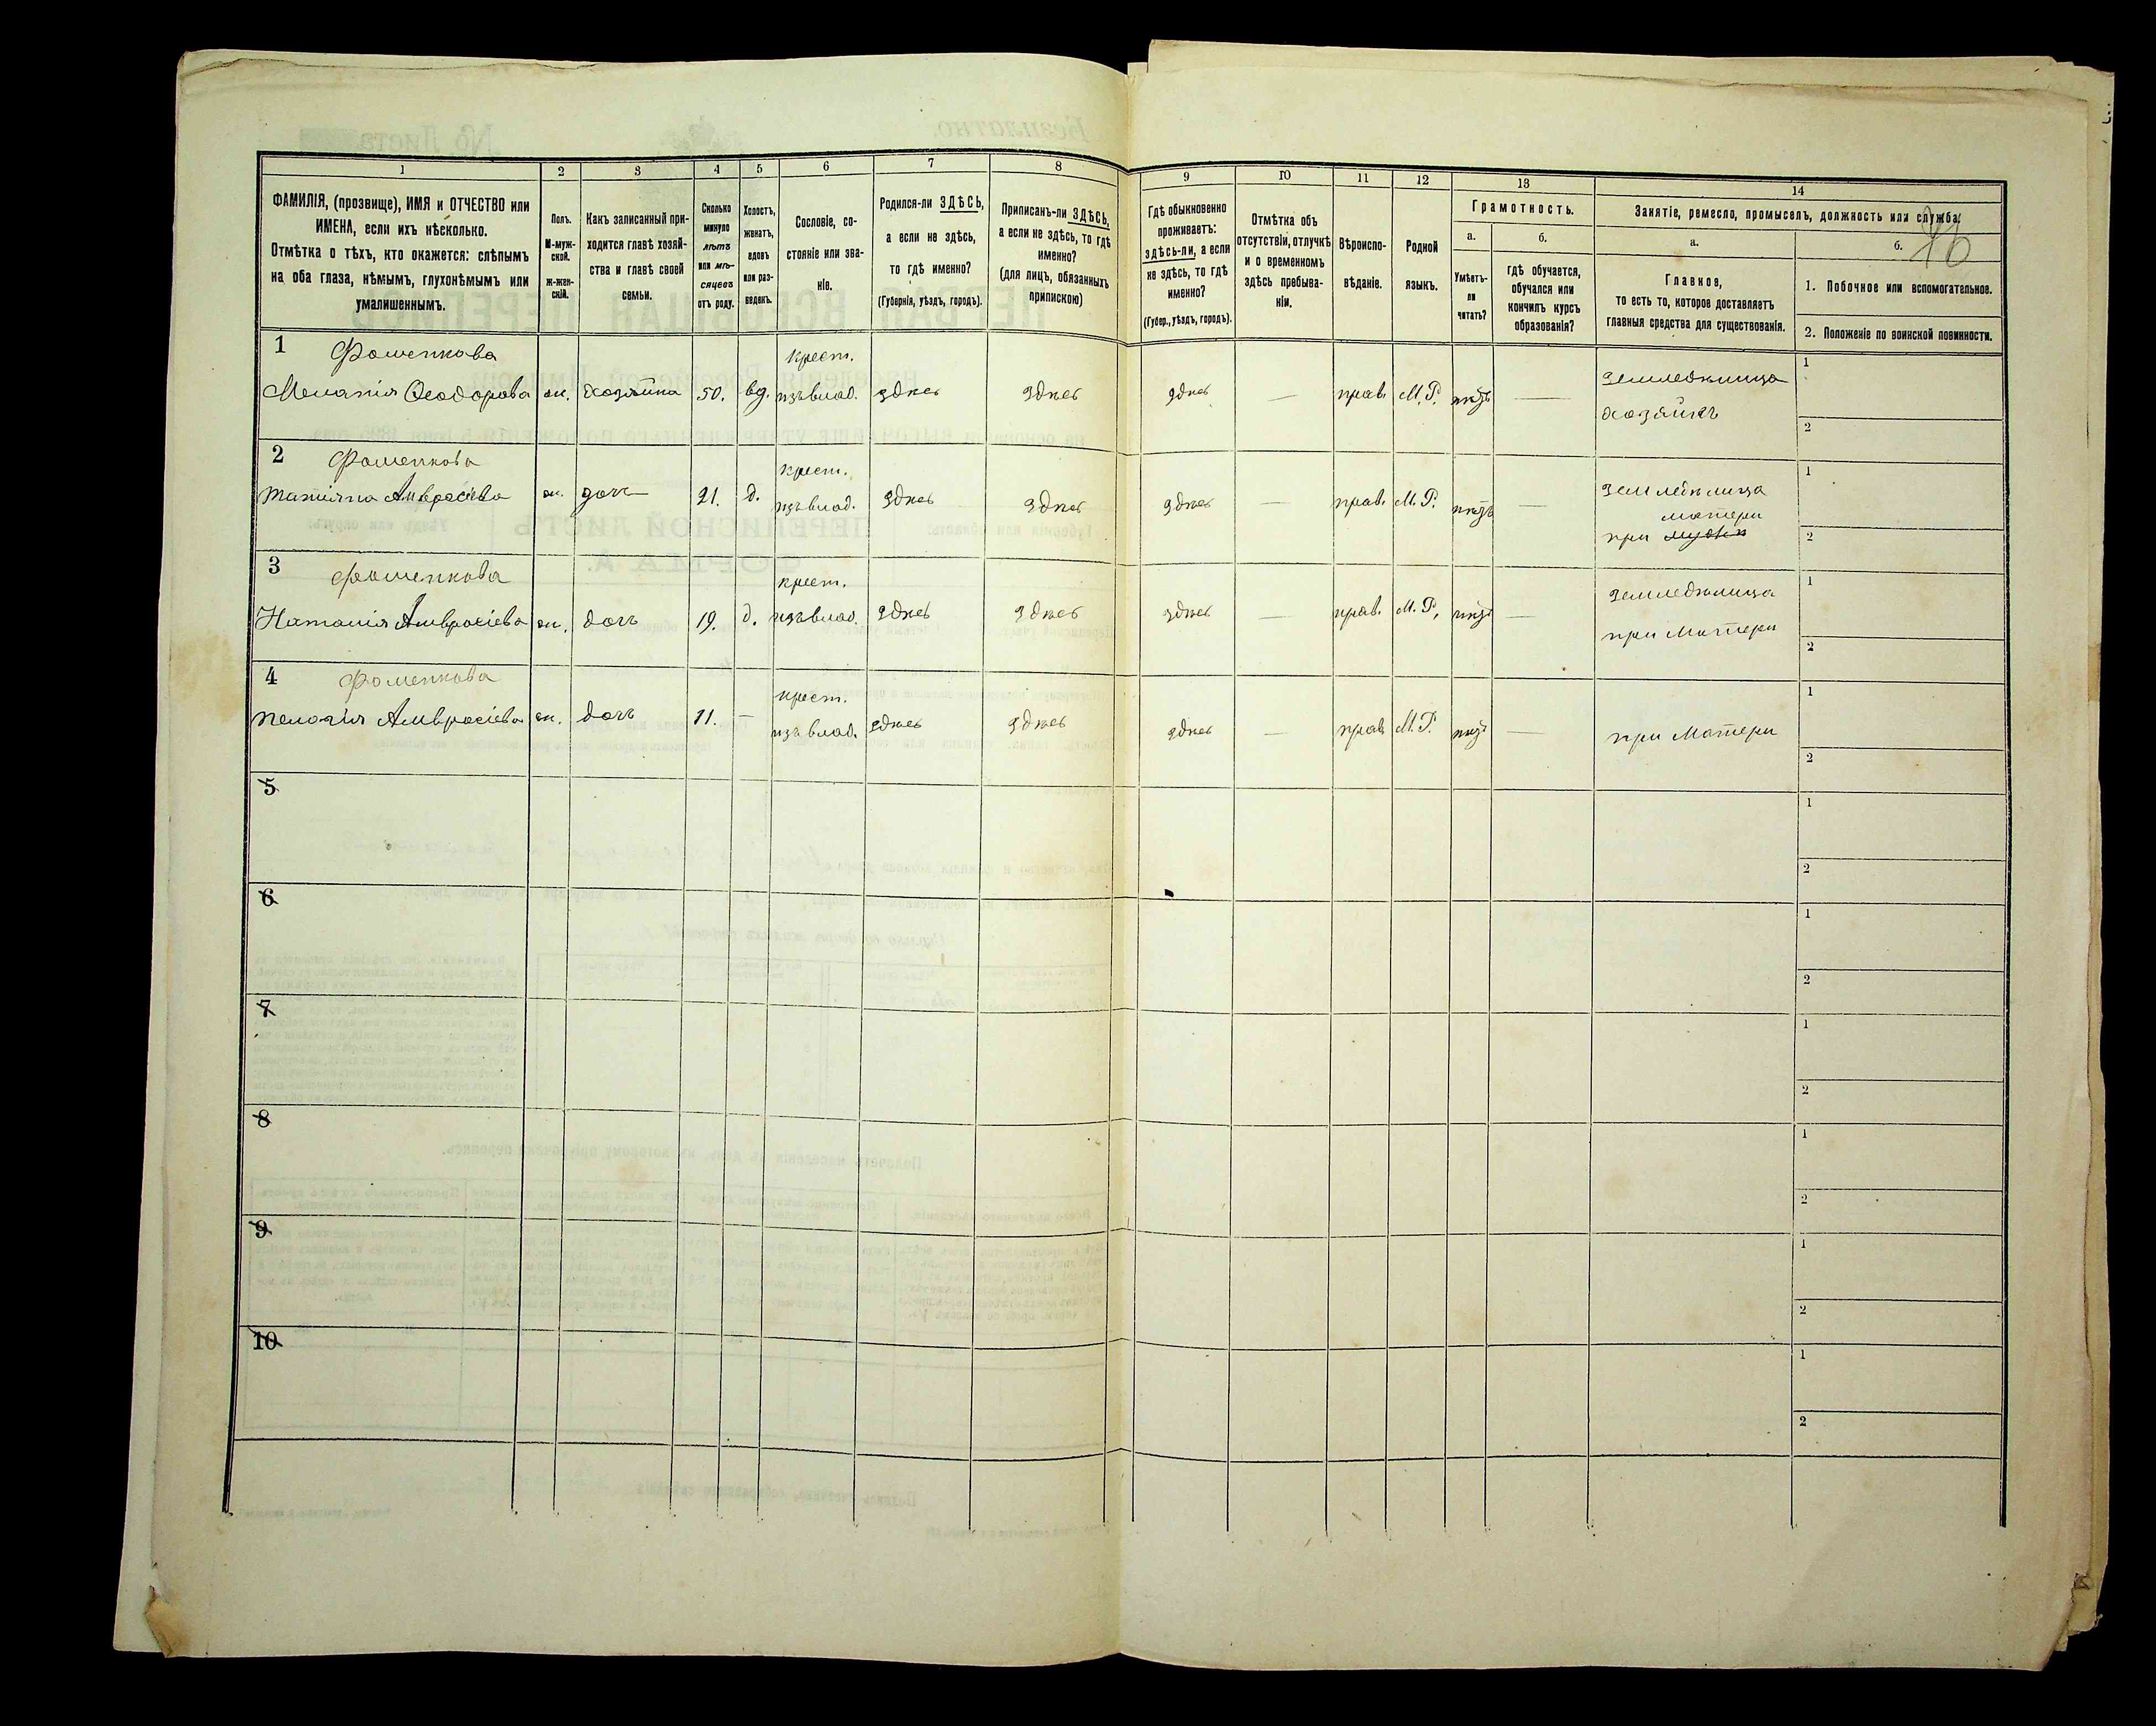 1
2
3
4
5
6
7
8
9
10
11
12
13
14
ФАМИЛІЯ, (прозвище), ИМЯ и ОТЧЕСТВО или
ИМЕНА, если ихъ нѣсколько.
Отмѣтка о тѣхъ, кто окажется: слѣпымъ
на оба глаза, нѣмымъ, глухонѣмымъ или
умалишеннымъ.
Полъ.
М-муж-
ской.
ж-жен-
скій.
Какъ записанный при-
ходится главѣ хозяй-
ства и главѣ своей
семьи.
Сколько
минуло
лѣтъ
или мѣ-
сяцевъ
отъ роду.
Холостъ,
женатъ,
вдовъ
или раз-
веденъ.
Сословіе, со-
стояніе или зва-
ніе.
Родился-ли ЗДѢСЬ,
а если не здѣсь,
то гдѣ именно?
(Губернія, уѣздъ, городъ).
Приписанъ-ли ЗДѢСЬ,
а если не здѣсь, то гдѣ
именно?
(для лицъ, обязанныхъ
припискою)
Гдѣ обыкновенно
проживаетъ:
здѣсь-ли, а если
не здѣсь, то гдѣ
именно?
(Губер., уѣздъ, городъ).
Отмѣтка объ
отсутствіи, отлучкѣ
и о временномъ
здѣсь пребыва-
ніи.
Вѣроиспо-
вѣданіе.
Родной
языкъ.
Грамотность.
а.
б.
Умѣетъ-
ли
читать?
гдѣ обучается,
обучался или
кончилъ курсъ
образованія?
Занятіе, ремесло, промыселъ, должность или служба.
а.
б.
Главное,
то есть то, которое доставляетъ
главныя средства для существованія.
1. Побочное или вспомогательное.
2. Положеніе по воинской повинности.
1
Фоменкова
Меланія Ѳеодорова
ж.
хозяйка
50.
вд.
крест.
изъ влад.
здѣсь
здѣсь
здѣсь
—
прав.
М.Р.
нѣтъ
—
Земледѣлица
хозяйка
1
2
2
Фоменкова
Татіяна Амвросіева
ж.
дочь
21.
д.
крест.
изъ влад.
здѣсь
здѣсь
здѣсь
—
прав.
М.Р.
нѣтъ
—
Земледѣлица
матери
при
1
2
3
Фоменкова
Наталія Амвросіева
ж.
дочь
19.
д.
крест.
изъ влад.
здѣсь
здѣсь
здѣсь
—
прав.
М.Р.
нѣтъ
—
Земледѣлица
при Матери
1
2
4
Фоменкова
Пелагія Амвросіева
ж.
дочь
11.
—
крест.
изъ влад.
здѣсь
здѣсь
здѣсь
—
прав.
М.Р.
нѣтъ
—
при Матери
1
2
5
1
2
6
1
2
7
1
2
8
1
2
9
1
2
10
1
2